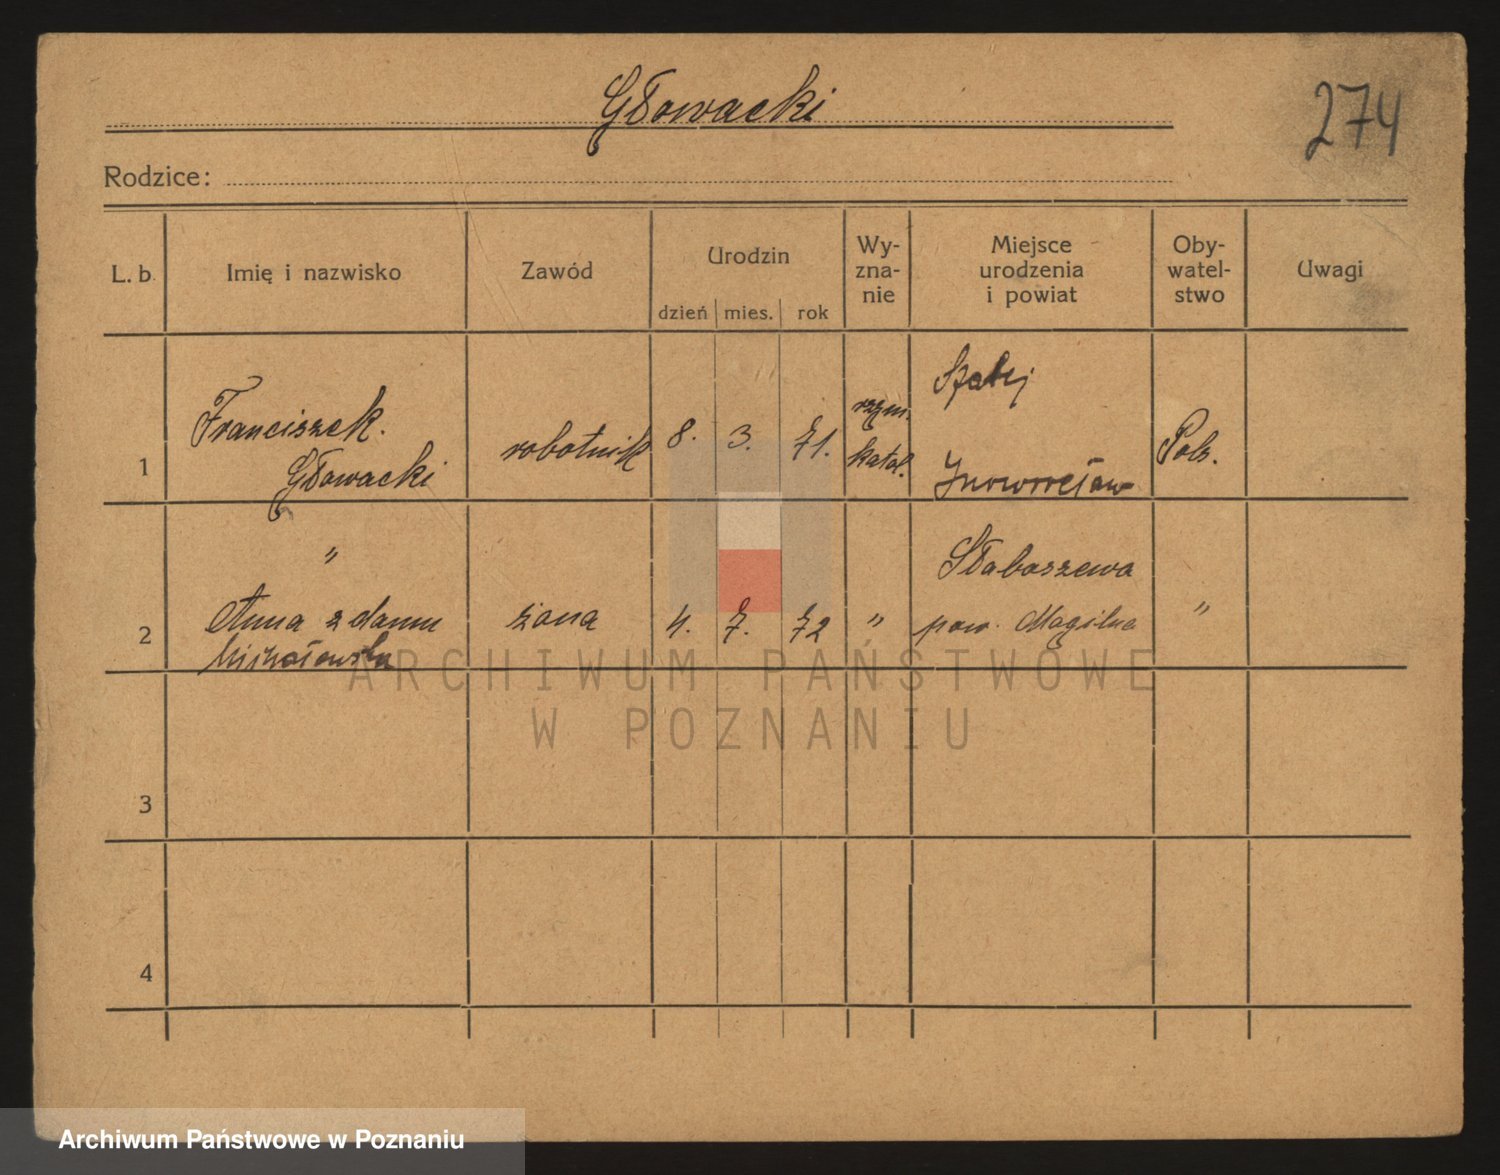 274
Głowacki
Rodzice:
L. b. Imię i nazwisko Zawód Urodzin Wy-
zna-
nie Miejsce
urodzenia
i powiat Oby-
watel-
stwo Uwagi
dzień mies. rok
1 Franciszek
Głowacki robotnik 8. 3. 71. rzym.
katol. Inowrocław Pols.
2 "
Anna z domu żona 4. 7. 72 " Słaboszewo
pow. Mogilno "
3
4
ARCHIWUM PAŃSTWOWE
W POZNANIU
Archiwum Państwowe w Poznaniu